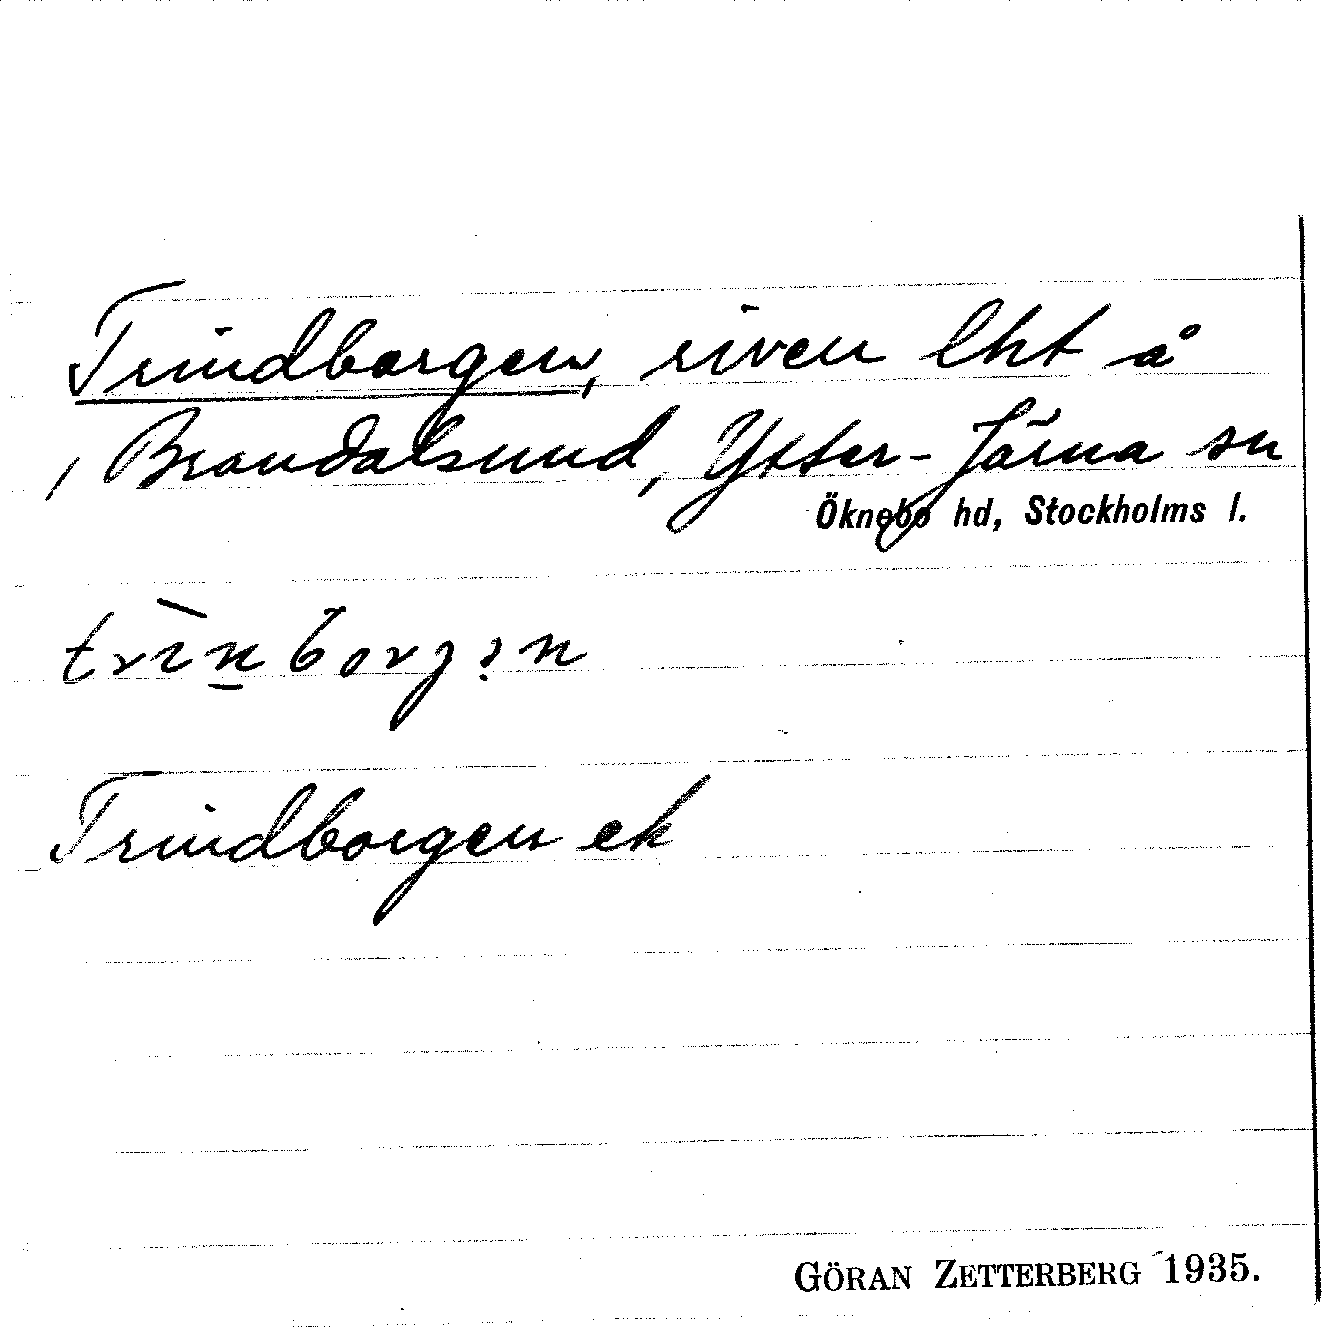 Trindborgen, riven lht å
, Brandalsund, Ytter-Järna sn
Öknebo hd, Stockholms l.
trìn̠borgən
Trindborgen ek
GÖRAN ZETTERBERG 1935.